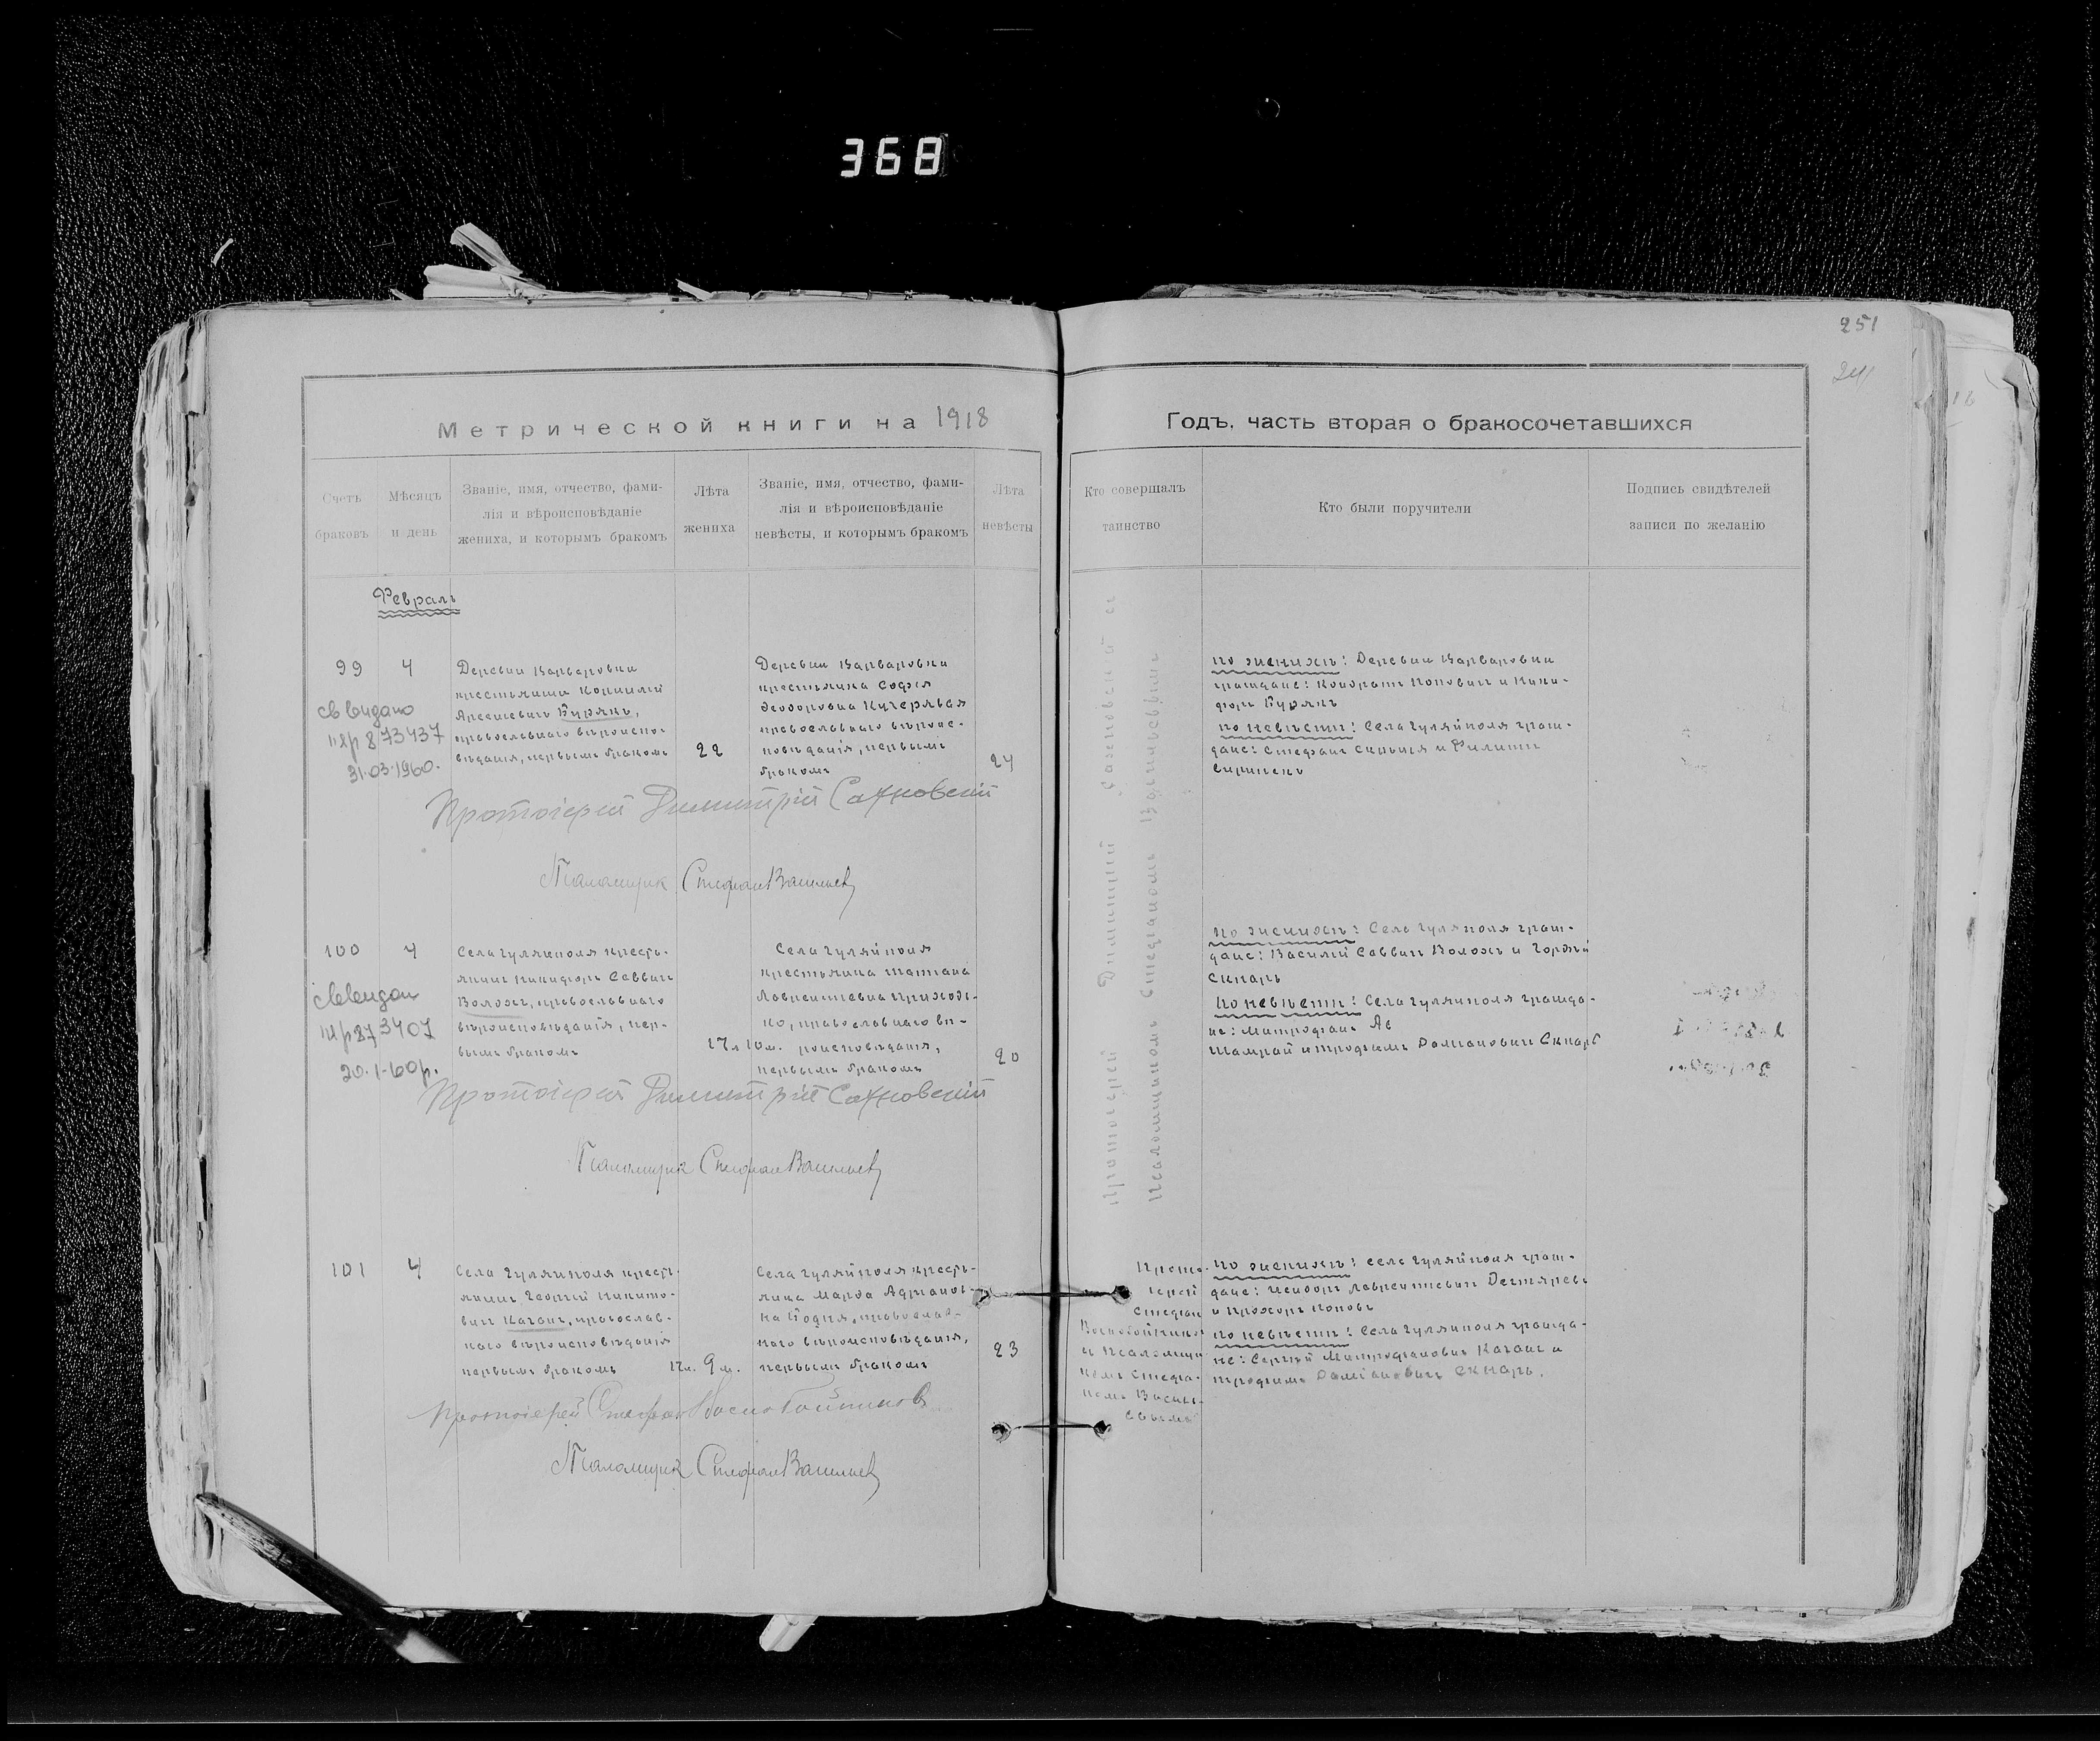 368
251
Метрической книги на 1918
Годъ, часть вторая о бракосочетавшихся
Счетъ
браковъ
Мѣсяцъ
и день
Званіе, имя, отчество, фами-
лія и вѣроисповѣданіе
жениха, и которымъ бракомъ
Лѣта
жениха
Званіе, имя, отчество, фами-
лія и вѣроисповѣданіе
невѣсты, и которымъ бракомъ
Лѣта
невѣсты
Кто совершалъ
таинство
Кто были поручители
Подпись свидѣтелей
записи по желанію
Февраль
99
4
Деревни Варваровки
крестьянинъ Корнилій
Арсеніевичъ Бурякъ,
православнаго вѣроиспо-
вѣданія, первымъ бракомъ
22
Деревни Варваровки
крестьянка Софія
Ѳеодоровна Кучерявая
православнаго вѣроис-
повѣданія, первымъ
бракомъ
24
31.03.1960.
по женихѣ: Деревни Варваровки
граждане: Кондратъ Поповичъ и Ники-
форъ Бурякъ
по невѣстѣ: Села Гуляйполя граж-
дане: Стефанъ и Филиппъ
Протоіерей Димитрій Сахновскій
Псаломщик Стефан Васильев
100
4
Села Гуляйполя кресть-
янинъ Никифоръ Саввичъ
Волохъ, православнаго
вѣроисповѣданія, пер-
вымъ бракомъ
17 л 10 м.
Села Гуляйполя
крестьянка Татіана
Лаврентіевна Приходь-
ко, православнаго вѣ-
роисповѣданія,
первымъ бракомъ
20
20.1-60р.
по женихѣ: Села Гуляйполя граж-
дане: Василій Саввичъ Волохъ и Гордѣй
Скнарь
по невѣстѣ: Села Гуляйполя гражда-
не: Митрофанъ Ав
Шамрай и Трофимъ Даміановичъ Скнарь
Протоіерей Димитрій Сахновскій
Псаломщик Стефан Васильев
Протоіерей Димитрій Сахновскій съ
Псаломщикомъ Стефаномъ Васильевымъ
101
4
Села Гуляйполя кресть-
янинъ Георгій Никито-
вичъ Каганъ, православ-
наго вѣроисповѣданія
первымъ бракомъ
17 л. 9 м.
Села Гуляйполя кресть-
янка Марѳа Адріанов-
на православ-
наго вѣроисповѣданія,
первымъ бракомъ
23
Прото-
іерей
Стефан
и Псаломщи-
комъ Стефа-
номъ Василь-
евымъ
по женихѣ: Села Гуляйполя граж-
дане: Исидоръ Лаврентіевичъ Дегтяревъ
и Прохоръ Поповъ
по невѣстѣ: Села Гуляйполя гражда-
не: Сергій Митрофановичъ Каганъ и
Трофимъ Даміановичъ Скнарь.
Протоіерей Стефан Воскобойников
Псаломщик Стефан Васильев